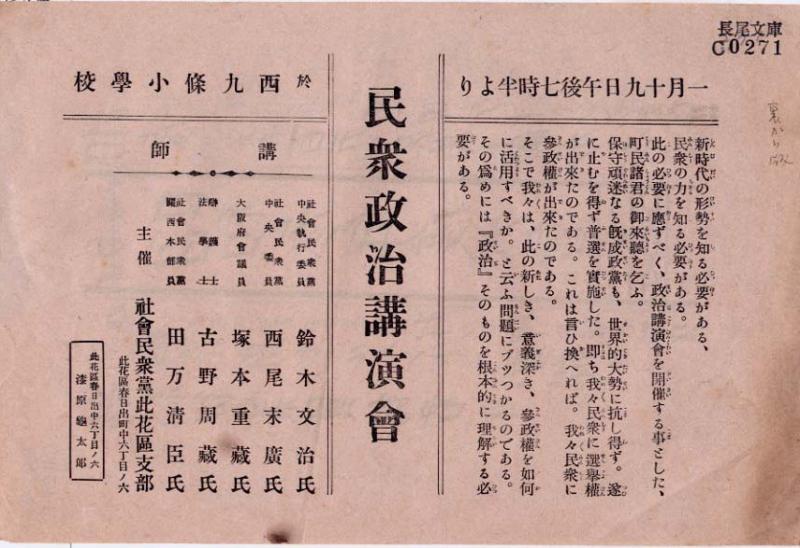 長尾文庫
C0271
一月十九日午後七時半より
新時代の形勢を知る必要がある、
民衆の力を知る必要がある。
此の必要に應ずべく、政治講演會を開催する事とした、
町民諸君の御來聽を乞ふ。
保守頑迷なる既成政黨も、世界的大勢に抗し得ず。遂
に止むを得ず普選を實施した。卽ち我々民衆に選擧權
が出來たのである。これは言ひ換へれば。我々民衆に
參政權が出來たのである。
そこで我々は、此の新しき、意義深き、參政權を如何
に活用すべきか。と云ふ問題にブツつかるのである。
その爲めには『政治』そのものを根本的に理解する必
要がある。
民衆政治講演會
於西九條小學校
講師
社會民衆黨中央執行委員 鈴木文治氏
社會民衆黨中央委員 西尾末廣氏
大阪府會議員 塚本重藏氏
辯護士法學士 古野周藏氏
社會民衆黨關西本部員 田万淸臣氏
主催 社會民衆黨此花區支部
此花區春日出町中六丁目ノ六
此花區春日出中六丁目ノ六
漆原龜太郎